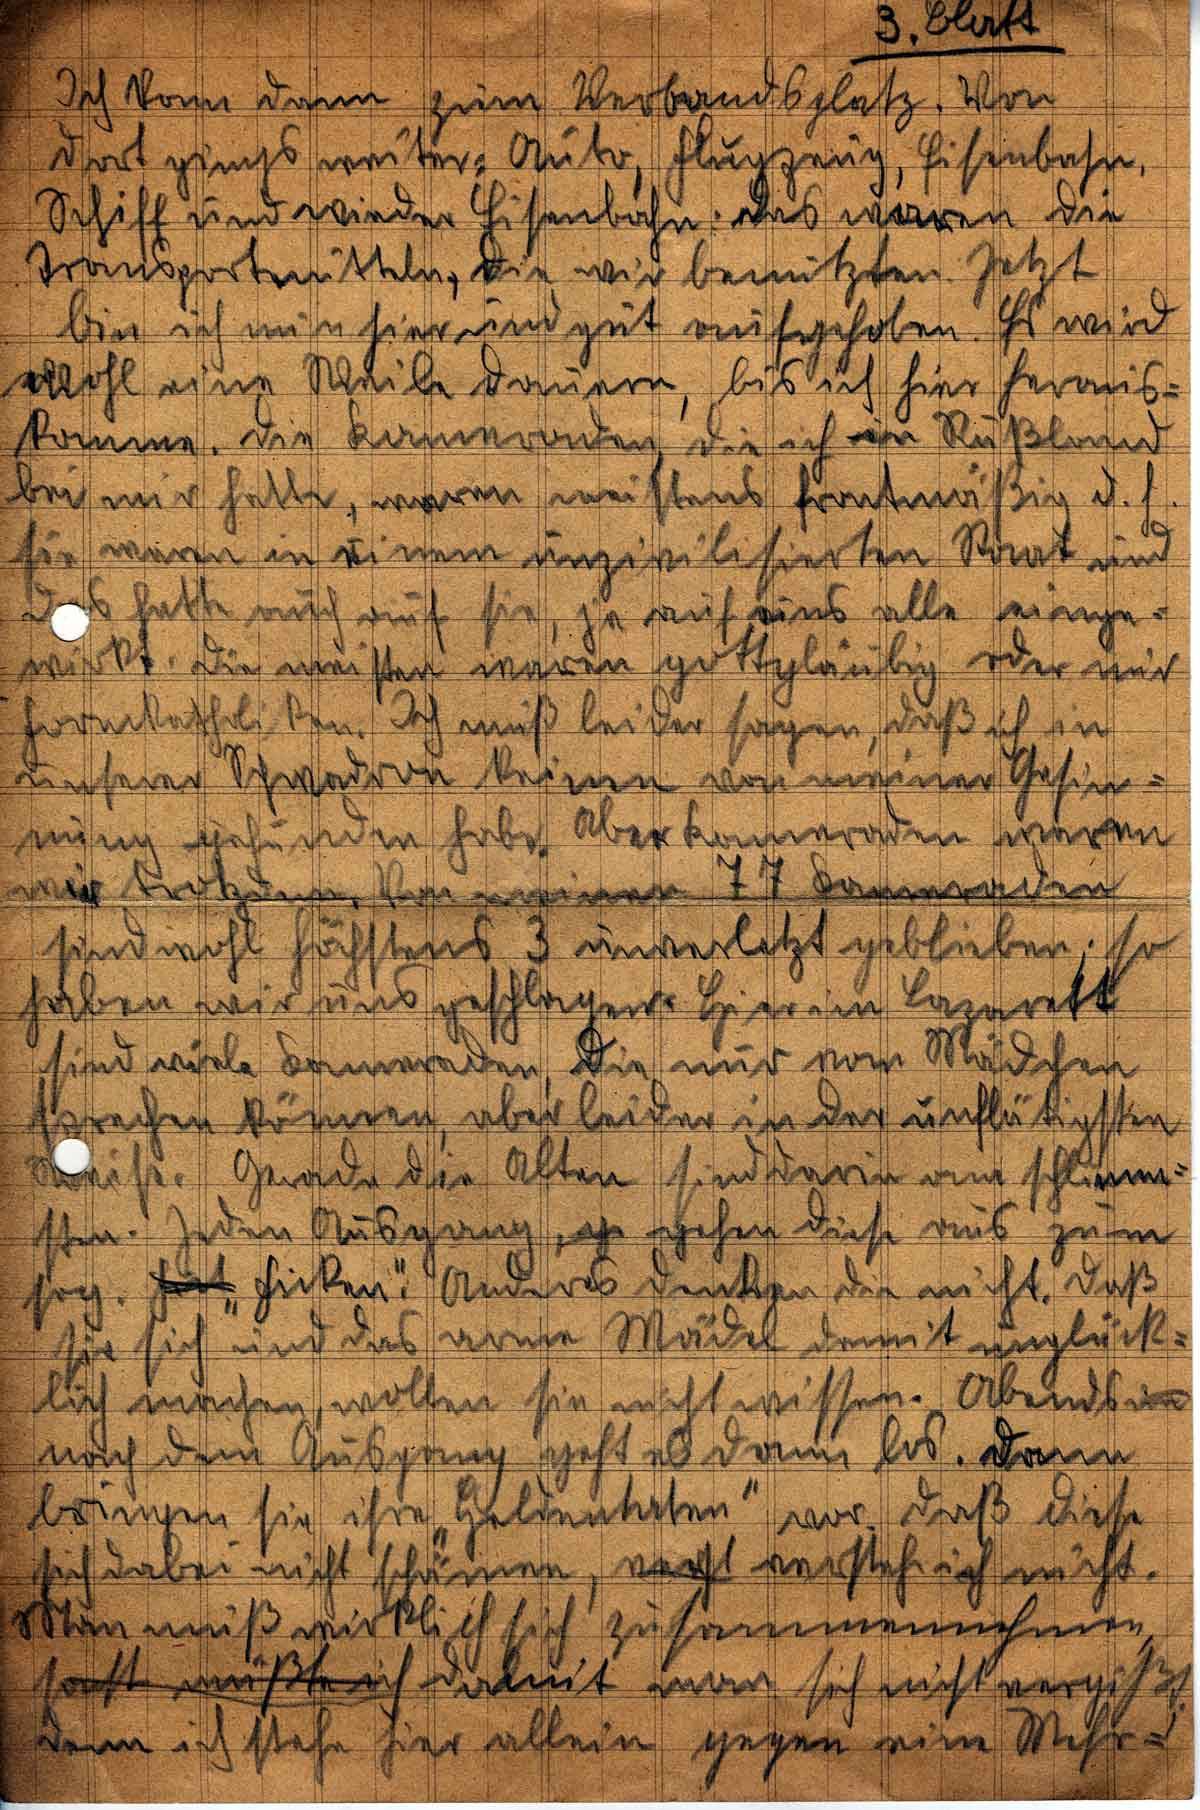 3. Blatt
Ich kam dann zum Verbandsplatz. Von
dort gings weiter: Auto, Flugzeug, Eisenbahn,
Schiff und wieder Eisenbahn: das waren die
Transportmitteln, die wir benützten. Jetzt
bin ich nun hier und gut aufgehoben. Es wird
wohl eine Weile dauern, bis ich hier heraus=
komme. Die Kameraden, die ich in Rußland
bei mir hatte, waren meistens frontmäßig d. h.
sie waren in einem unzivilisierten Staat und
das hatte auch auf sie, ja auf uns alle einge=
wirkt. Die meisten waren gottgläubig oder nur
Formkatholiken. Ich muß leider sagen, daß ich in
unserer Schwadron keinen von meiner Gesin=
nung gefunden habe. Aber Kameraden waren
wir trotzdem. Von meinen 77 Kameraden
sind wohl höchstens 3 unverletzt geblieben; so
haben wir uns geschlagen. Hier im Lazarett
sind viele Kameraden, die nur vom Mädchen
sprechen können, aber leider in der unflätigsten
Weise. Gerade die Alten sind darin am schlimm=
sten. Jeden Ausgang, gehen diese aus zum
sog. „Ficken". Anderes denken die nicht. Daß
sie sich und das arme Mädel damit unglück=
lich machen, wollen sie nicht wissen. Abends
nach dem Ausgang geht es dann los. Dann
bringen sie ihre „Heldentaten" vor. Daß diese
sich dabei nicht schämen, versteh ich nicht.
Man muß wirklich sich zusammennehmen,
sonst müßte ich damit man sich nicht vergißt,
denn ich stehe hier allein gegen eine Mehr=